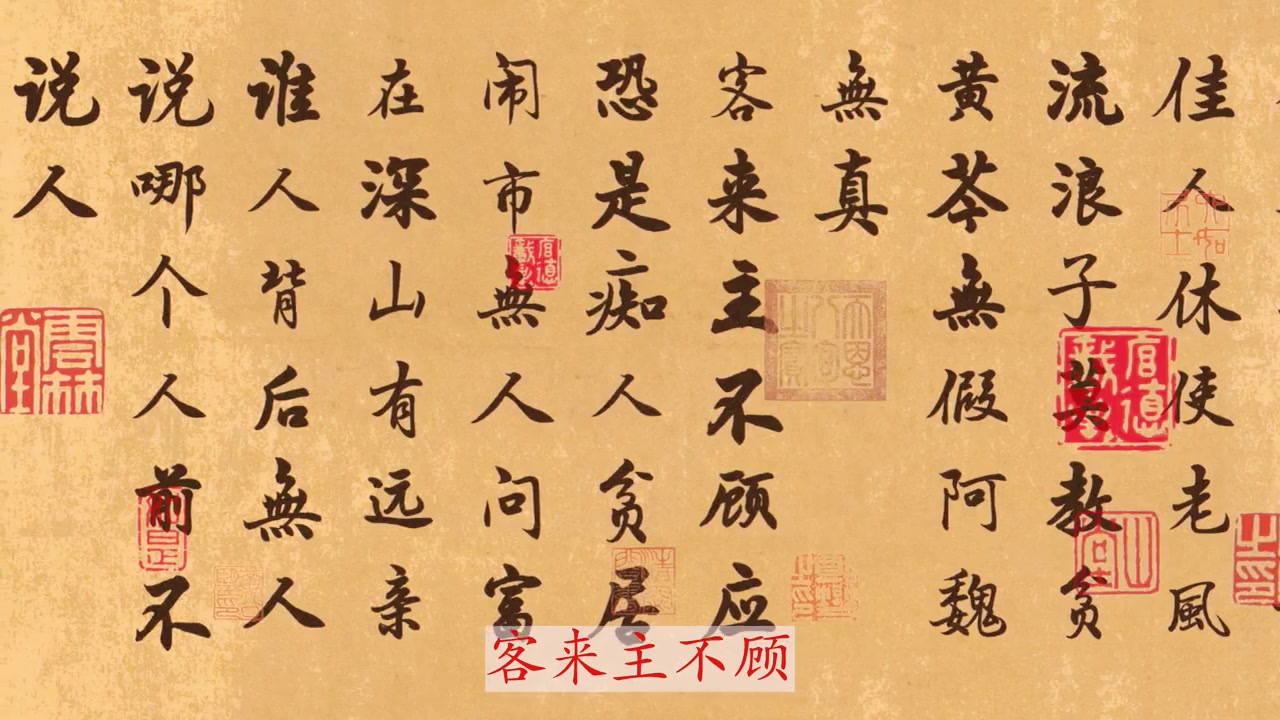 佳人休使老風
流浪子莫教贫
黄芩無假阿魏
無真
客来主不顾应
恐是痴人贫居
闹市無人问富
在深山有远亲
谁人背后無人
说哪个人前不
说人
客来主不顾